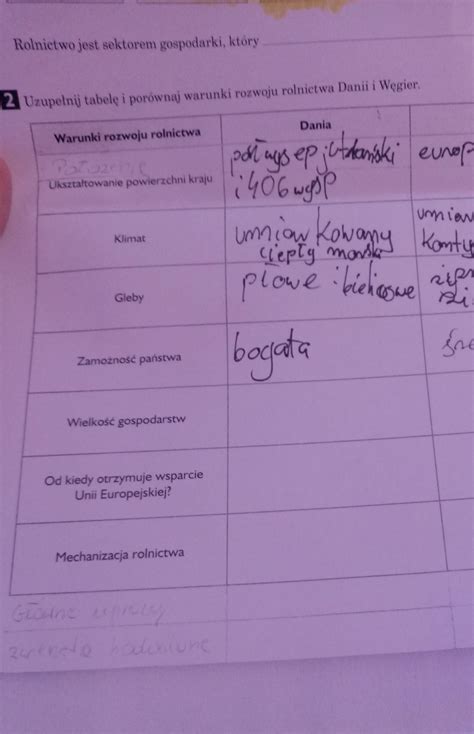 Rolnictwo jest sektorem gospodarki, który
2 Uzupełnij tabelę i porównaj warunki rozwoju rolnictwa Danii i Węgier.
Warunki rozwoju rolnictwa
Dania
Położenie
Ukształtowanie powierzchni kraju
półwysep jutlandzki
i 406 wysp
europ
Klimat
umiarkowany
ciepły morski
umiar
Gleby
płowe i bielicowe
Zamożność państwa
bogata
Wielkość gospodarstw
Od kiedy otrzymuje wsparcie
Unii Europejskiej?
Mechanizacja rolnictwa
Główne uprawy
zwierzęta hodowlane